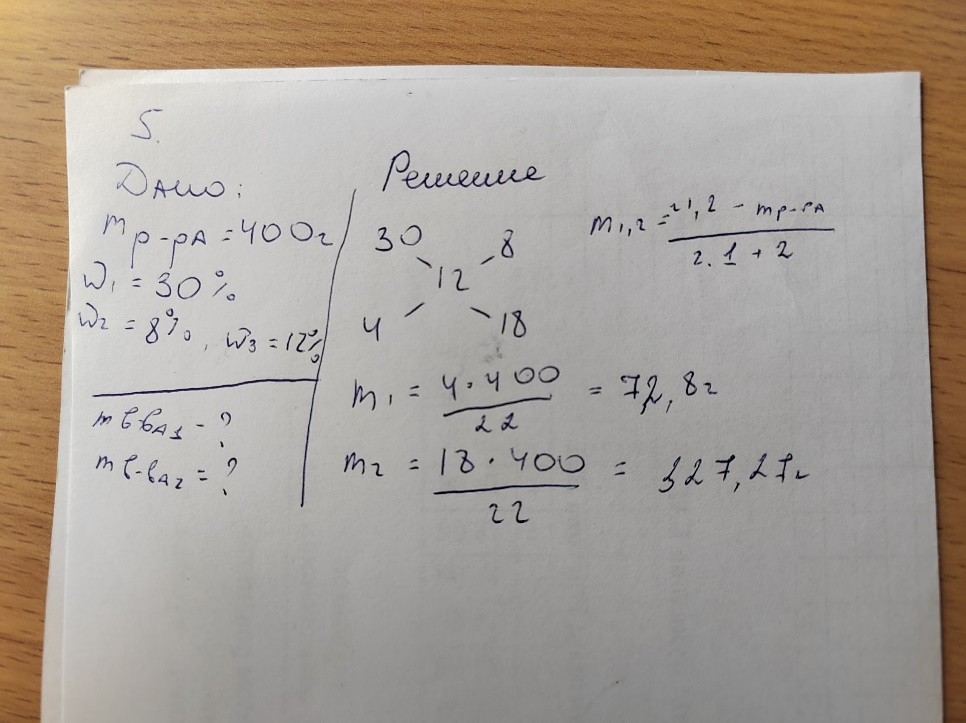 5.
Дано:
m р-ра = 400г
W₁ = 30%
W₂ = 8%, W₃ = 12%
m в-ва1 - ?
m в-ва2 = ?
Решение
30 8
12
4 18
m₁,₂ = г1,2 - mр-ра / г.1 + 2
m₁ = 4·400 / 22 = 72,8г
m₂ = 18·400 / 22 = 327,27г